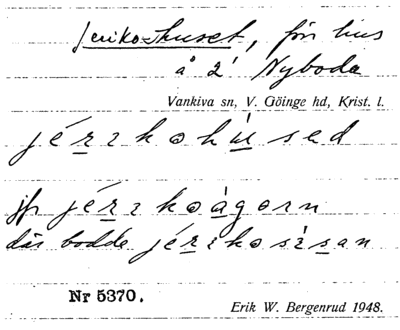 Jeriko-huset, förr hus
å 2' Nyboda
Vankiva sn, V. Göinge hd, Krist. l.
jérıkohúsed
jfr jérıkoágorn
där bodde jérıkosísan
Nr 5370.
Erik W. Bergenrud 1948.